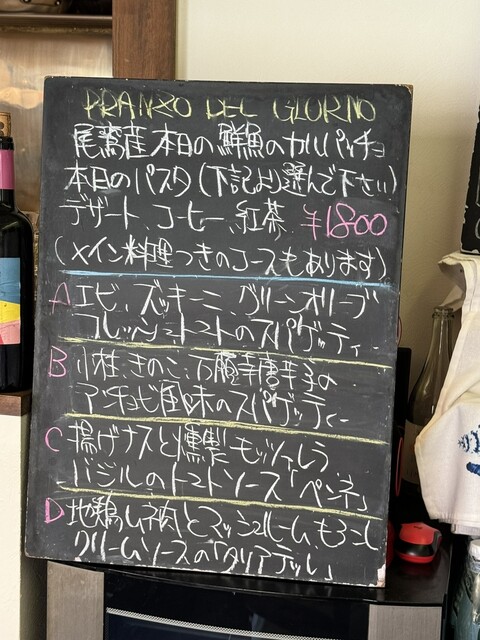 PRANZO DEL GIORNO
尾鷲産本日の鮮魚のカルパッチョ
本日のパスタ(下記より選んで下さい)
デザート、コーヒー、紅茶 ¥1800
(メイン料理つきのコースもあります)
A エビ、ズッキーニ、グリーンオリーブ
フレッシュトマトのスパゲッティー
B 小柱、きのこ、万願寺唐辛子の
アンチョビ風味のスパゲッティー
C 揚げナスと燻製モッツァレラ
バジルのトマトソース「ペンネ」
D 地鶏ムネ肉とマッシュルーム、もろこし
クリームソースの「タリアテッレ」